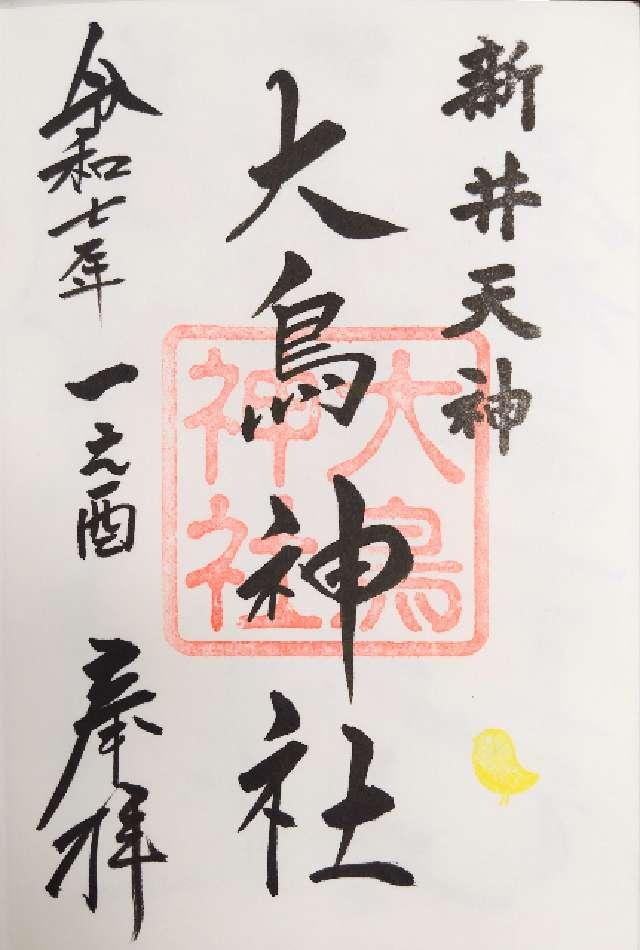 新井天神
大鳥神社
大鳥神社
令和七年 一之酉 奉拝